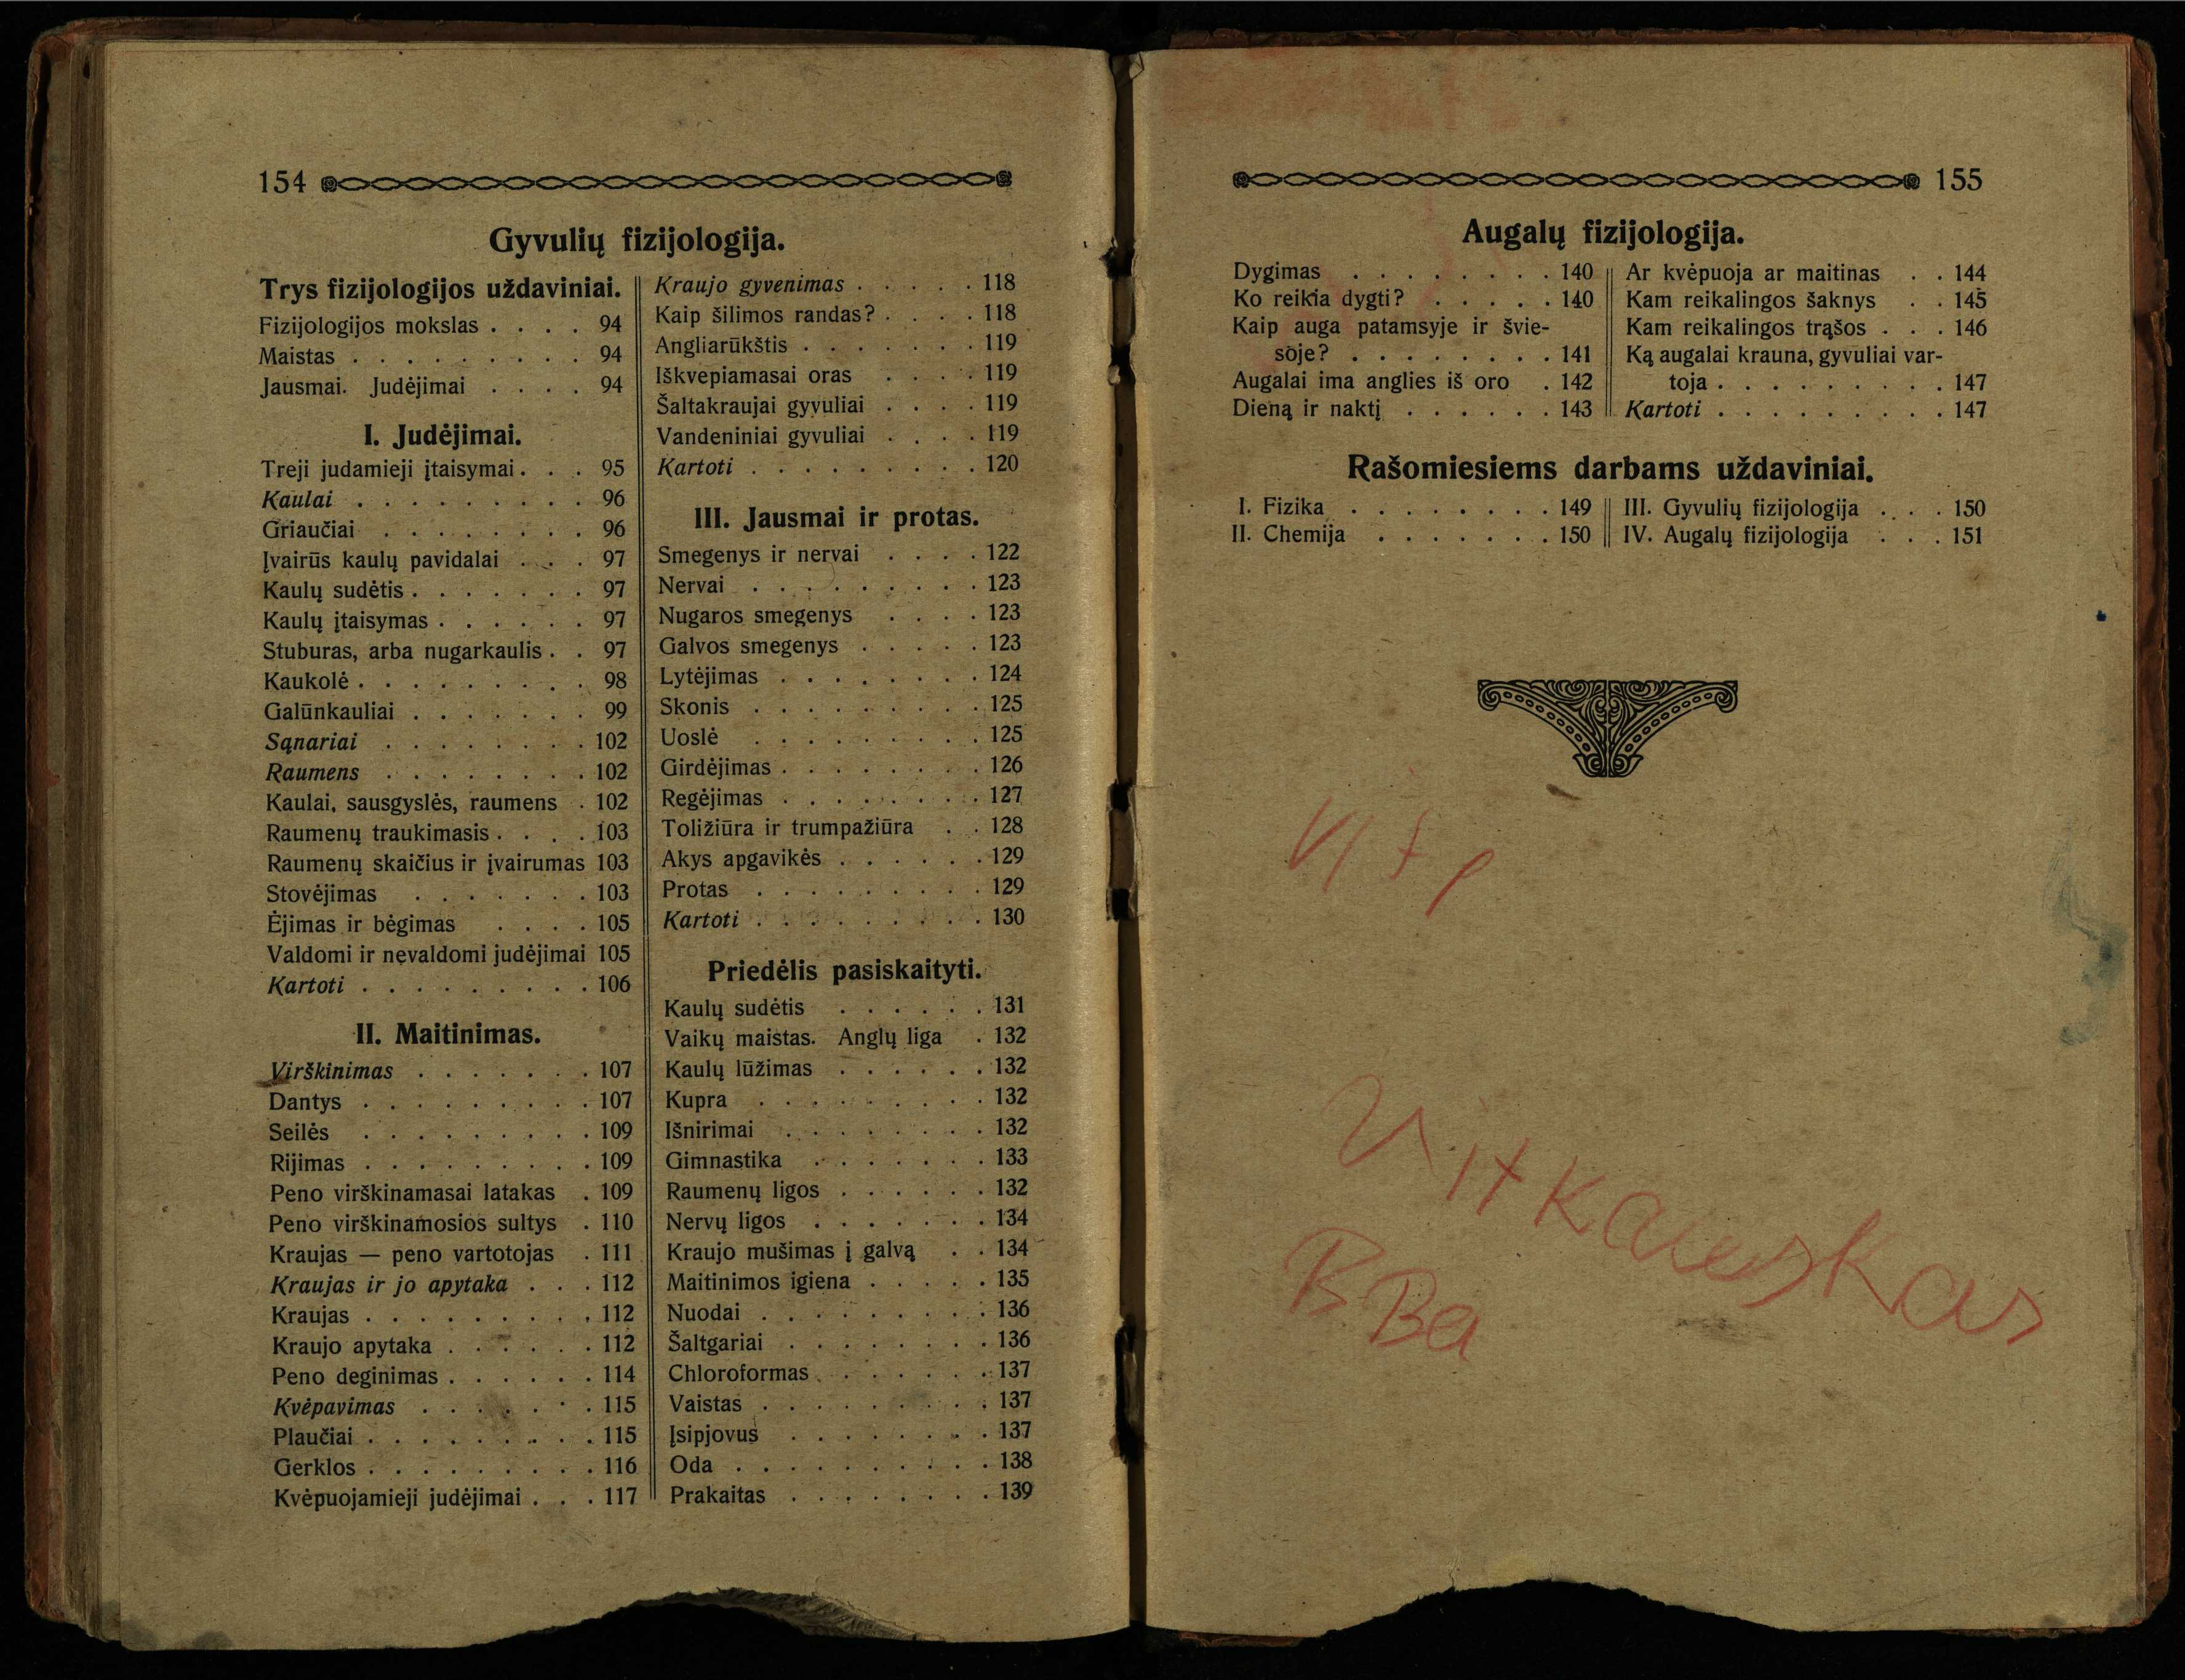 154
Gyvulių fizijologija.
Trys fizijologijos uždaviniai.
Fizijologijos mokslas . . . . 94
Maistas . . . . . . . . . 94
Jausmai. Judėjimai . . . . 94
I. Judėjimai.
Treji judamieji įtaisymai . . . 95
Kaulai . . . . . . . . . 96
Griaučiai . . . . . . . . 96
Įvairūs kaulų pavidalai . . . 97
Kaulų sudėtis . . . . . . . 97
Kaulų įtaisymas . . . . . . 97
Stuburas, arba nugarkaulis . . 97
Kaukolė . . . . . . . . . 98
Galūnkauliai . . . . . . . 99
Sąnariai . . . . . . . . 102
Raumens . . . . . . . . 102
Kaulai, sausgyslės, raumens . 102
Raumenų traukimasis . . . . 103
Raumenų skaičius ir įvairumas 103
Stovėjimas . . . . . . . 103
Ėjimas ir bėgimas . . . . 105
Valdomi ir nevaldomi judėjimai 105
Kartoti . . . . . . . . . 106
II. Maitinimas.
Virškinimas . . . . . . . 107
Dantys . . . . . . . . . 107
Seilės . . . . . . . . . 109
Rijimas . . . . . . . . . 109
Peno virškinamasai latakas . 109
Peno virškinamosios sultys . 110
Kraujas — peno vartotojas . 111
Kraujas ir jo apytaka . . . 112
Kraujas . . . . . . . . . 112
Kraujo apytaka . . . . . . 112
Peno deginimas . . . . . . 114
Kvėpavimas . . . . . . . 115
Plaučiai . . . . . . . . . 115
Gerklos . . . . . . . . . 116
Kvėpuojamieji judėjimai . . . 117
Kraujo gyvenimas . . . . . 118
Kaip šilimos randas? . . . . 118
Angliarūkštis . . . . . . . 119
Iškvepiamasai oras . . . . 119
Šaltakraujai gyvuliai . . . . 119
Vandeniniai gyvuliai . . . . 119
Kartoti . . . . . . . . . 120
III. Jausmai ir protas.
Smegenys ir nervai . . . . 122
Nervai . . . . . . . . . 123
Nugaros smegenys . . . . 123
Galvos smegenys . . . . . 123
Lytėjimas . . . . . . . . 124
Skonis . . . . . . . . . 125
Uoslė . . . . . . . . . 125
Girdėjimas . . . . . . . . 126
Regėjimas . . . . . . . . 127
Toližiūra ir trumpažiūra . . 128
Akys apgavikės . . . . . . 129
Protas . . . . . . . . . 129
Kartoti . . . . . . . . . 130
Priedėlis pasiskaityti.
Kaulų sudėtis . . . . . . 131
Vaikų maistas. Anglų liga . 132
Kaulų lūžimas . . . . . . 132
Kupra . . . . . . . . . 132
Išnirimai . . . . . . . . 132
Gimnastika . . . . . . . 133
Raumenų ligos . . . . . . 132
Nervų ligos . . . . . . . 134
Kraujo mušimas į galvą . . 134
Maitinimos igiena . . . . . 135
Nuodai . . . . . . . . . 136
Šaltgariai . . . . . . . . 136
Chloroformas . . . . . . . 137
Vaistas . . . . . . . . . 137
Įsipjovus . . . . . . . . 137
Oda . . . . . . . . . . 138
Prakaitas . . . . . . . . 139
155
Augalų fizijologija.
Dygimas . . . . . . . . 140
Ko reikia dygti? . . . . . 140
Kaip auga patamsyje ir švie-
soje? . . . . . . . . 141
Augalai ima anglies iš oro . 142
Dieną ir naktį . . . . . . 143
Ar kvėpuoja ar maitinas . . 144
Kam reikalingos šaknys . . 145
Kam reikalingos trąšos . . . 146
Ką augalai krauna, gyvuliai var-
toja . . . . . . . . . 147
Kartoti . . . . . . . . . 147
Rašomiesiems darbams uždaviniai.
I. Fizika . . . . . . . . 149
II. Chemija . . . . . . . 150
III. Gyvulių fizijologija . . . 150
IV. Augalų fizijologija . . . 151
Vitkauskas